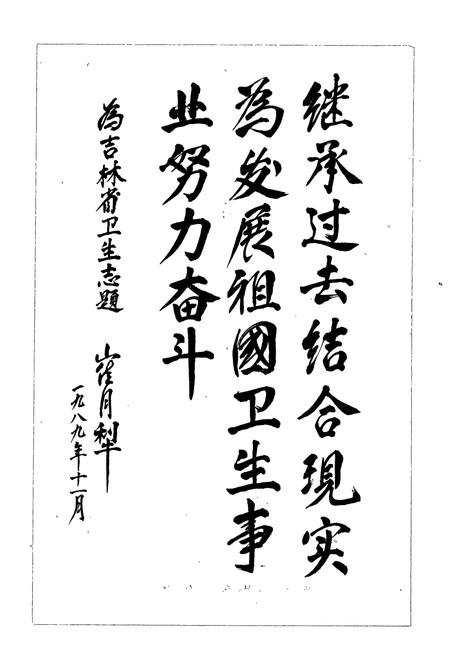 继承过去结合現实
為发展祖國卫生事
业努力奋斗
為吉林省卫生志題
崔月犁
一九八九年十一月